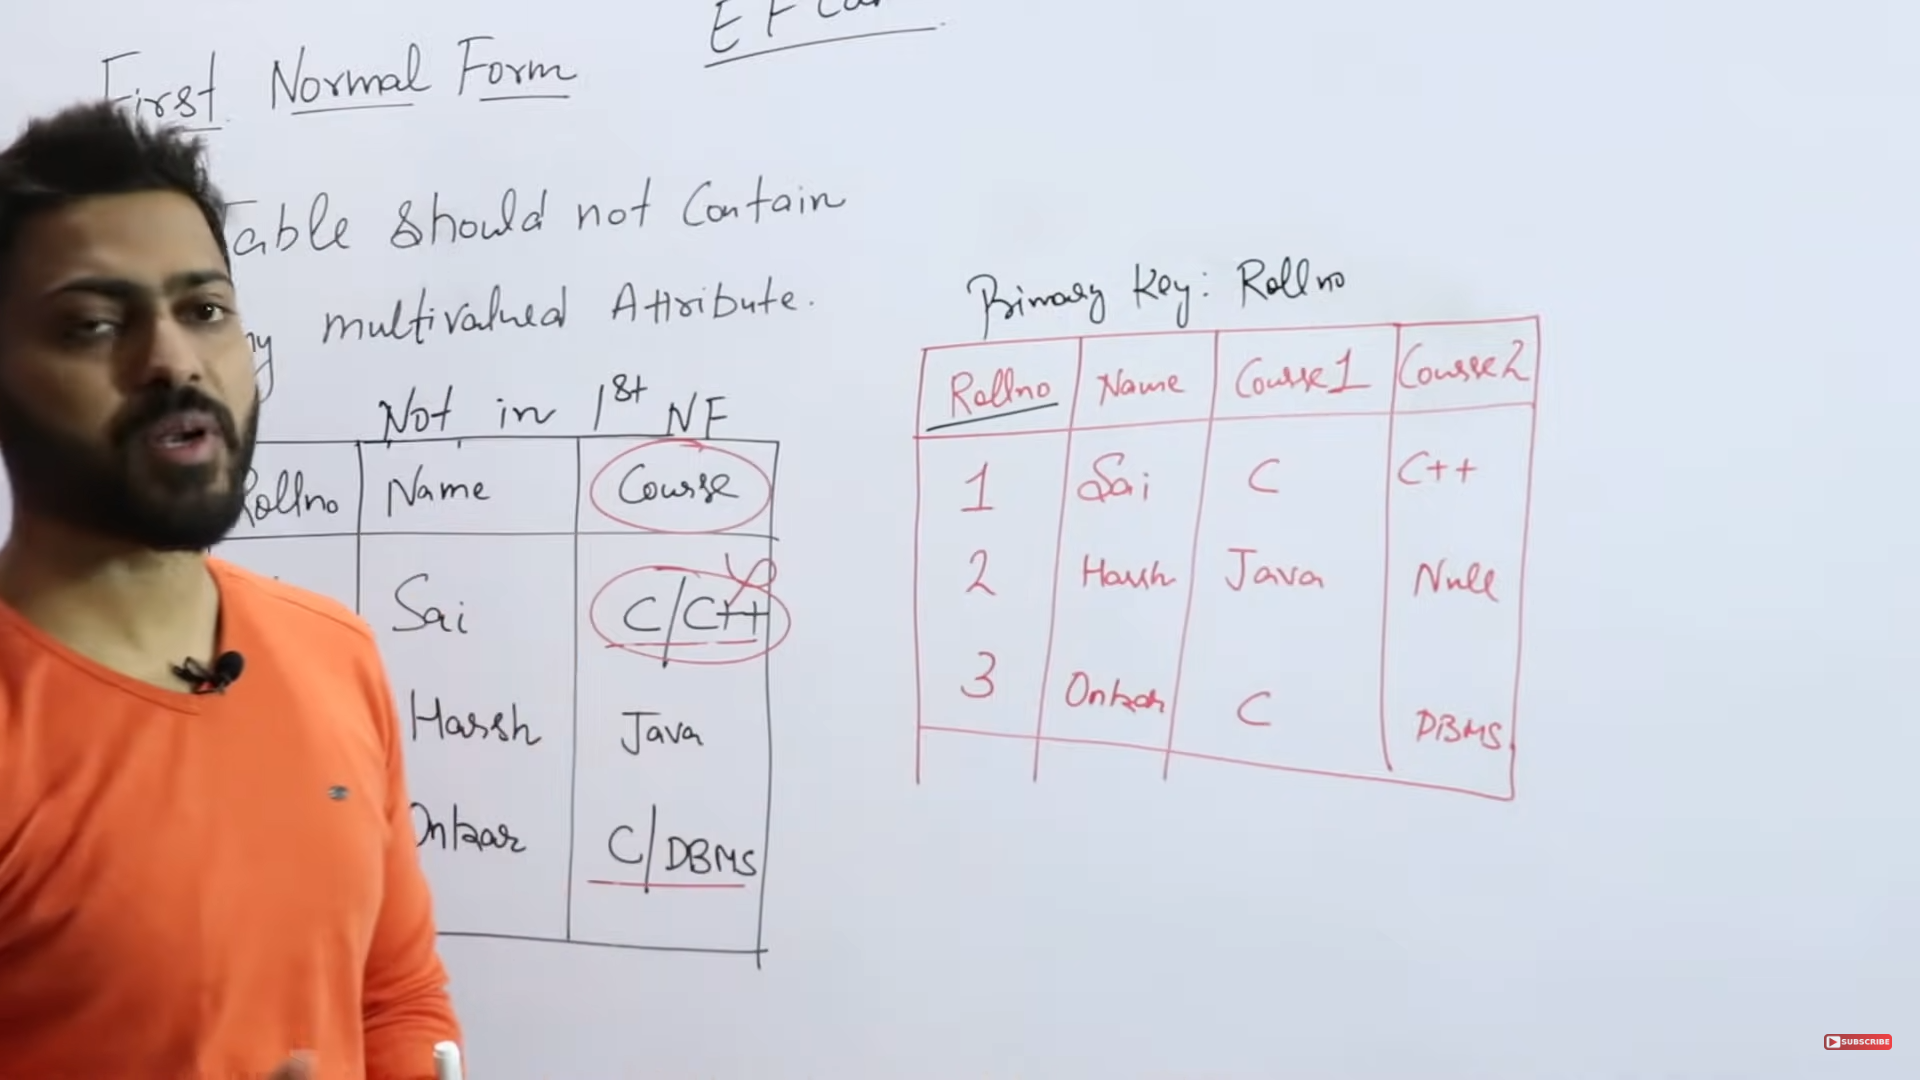 First Normal Form
E F
Table should not Contain
multivalued Attribute.
Not in 1st NF
Rollno Name Course
Sai C/C++
Harsh Java
Onkar C/DBMS
Primary Key: Rollno
Rollno Name Course1 Course2
1 Sai C C++
2 Harsh Java Null
3 Onkar C DBMS
SUBSCRIBE